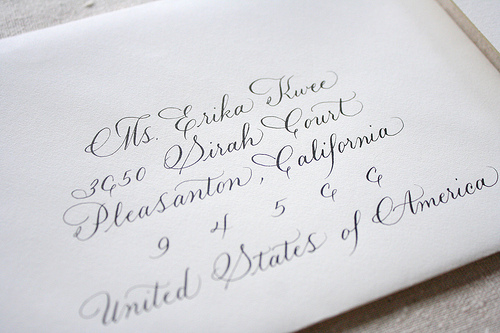 Ms. Erika Kwee
3650 Sirah Court
Pleasanton, California
9 4 5 6 6
United States of America